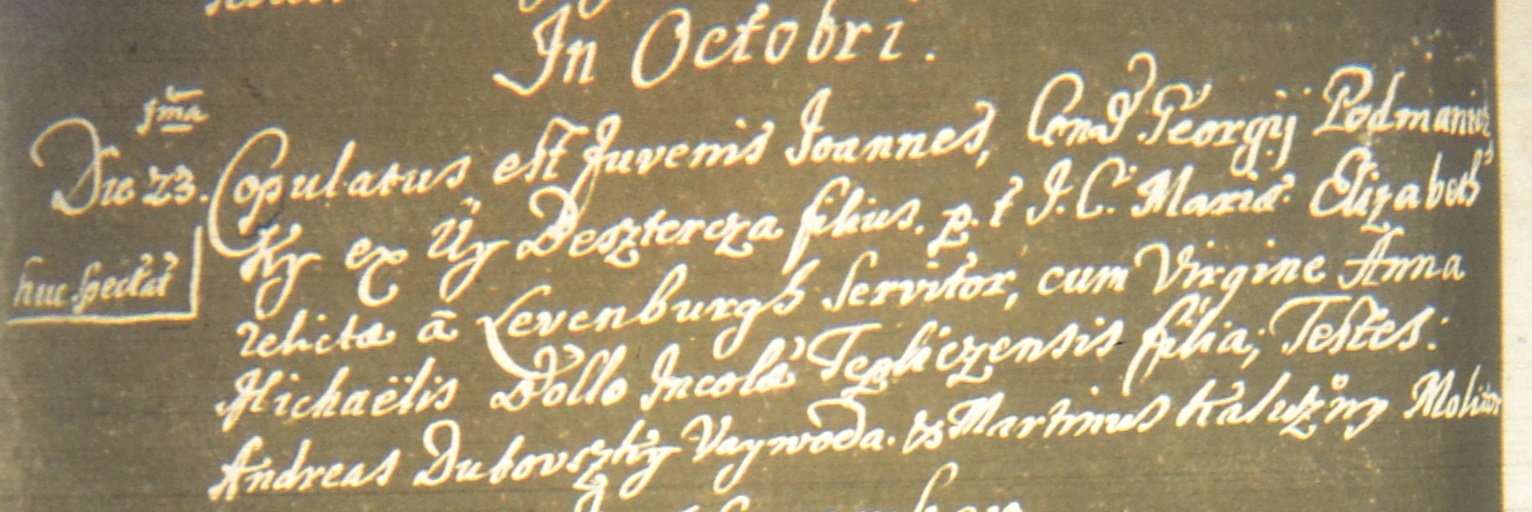 In Octobri.
1ma
Die 23. Copulatus est Juvenis Joannes, Cond Georgij Podmanicz
ky ex Uy Desztercza filius, p. t. J. C. Mariæ Elizabeth
huc spectat
relictæ â Levenburgh Servitor, cum Virgine Anna
Michaëlis Dollo Incolæ Tepliczensis filia, Testes:
Andreas Dubovszky Vaywoda. & Martinus Kalužny Molitor